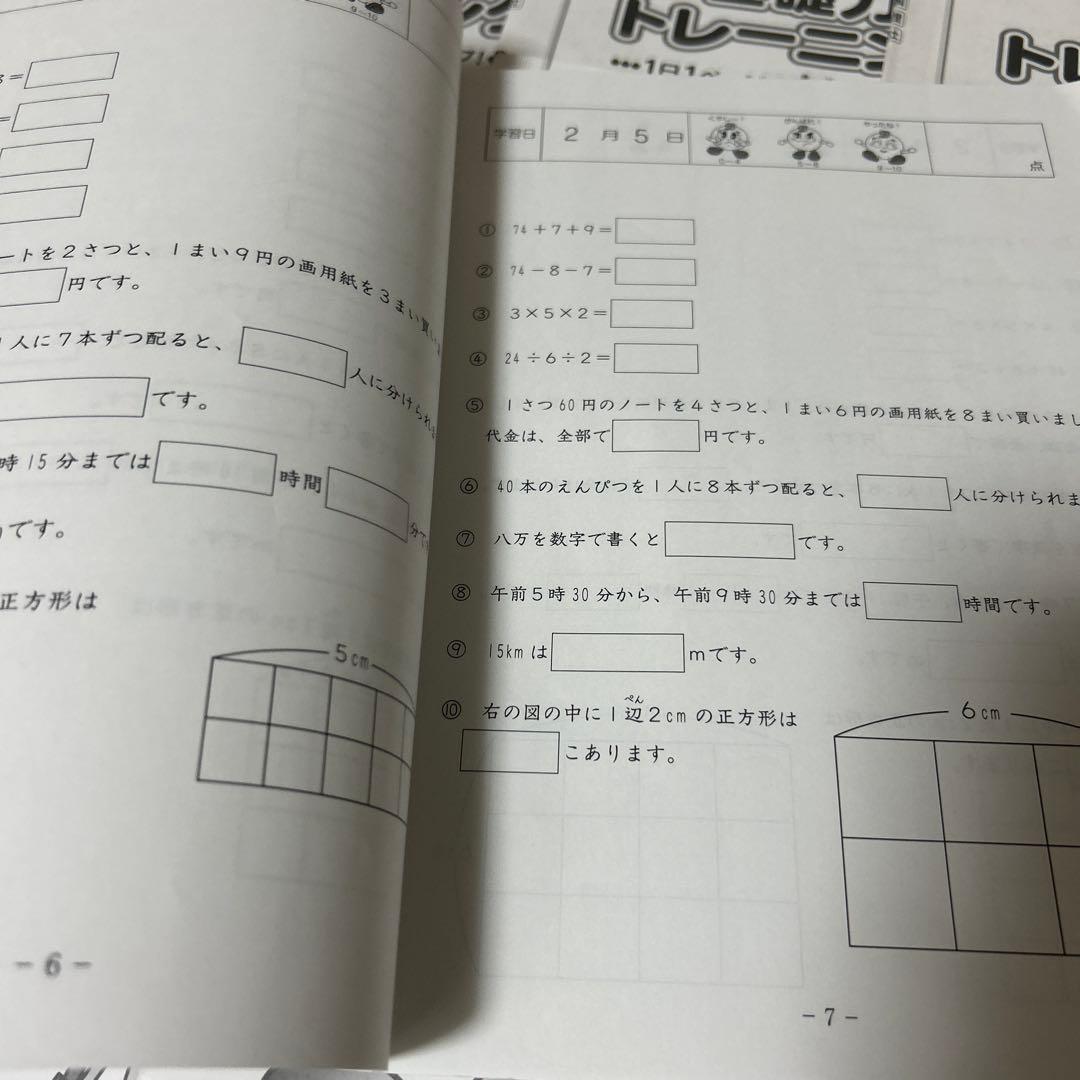 トレーニン
•••1日1ペ
ト
9〜10
g＝
＝
ートを2さつと、1まい9円の画用紙を3まい買い
円です。
1人に7本ずつ配ると、
人に分けられ
です。
時15分までは
時間
分で
です。
正方形は
5cm
－6－
学習日
2月5日
くやしー！
がんばれ！
やったね！
0〜4
5〜8
9〜10
点
① 74＋7＋9＝
② 74－8－7＝
③ 3×5×2＝
④ 24÷6÷2＝
⑤ 1さつ60円のノートを4さつと、1まい6円の画用紙を8まい買いまし
代金は、全部で 円です。
⑥ 40本のえんぴつを1人に8本ずつ配ると、 人に分けられま
⑦ 八万を数字で書くと です。
⑧ 午前5時30分から、午前9時30分までは 時間です。
⑨ 15kmは mです。
ぺん
⑩ 右の図の中に1辺2cmの正方形は
こあります。
6cm
－7－